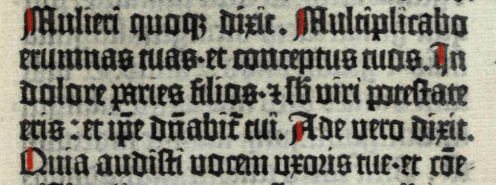 Mulieri quoqꝫ dixit. Multiplicabo
erumnas tuas·et conceptus tuos. In
dolore paries filios·⁊ sb̄ viri potestate
eris: et ip̄e dn̄abit̄ tui. Ade vero dixit.
Quia audisti vocem vxoris tue·et cōe⸗